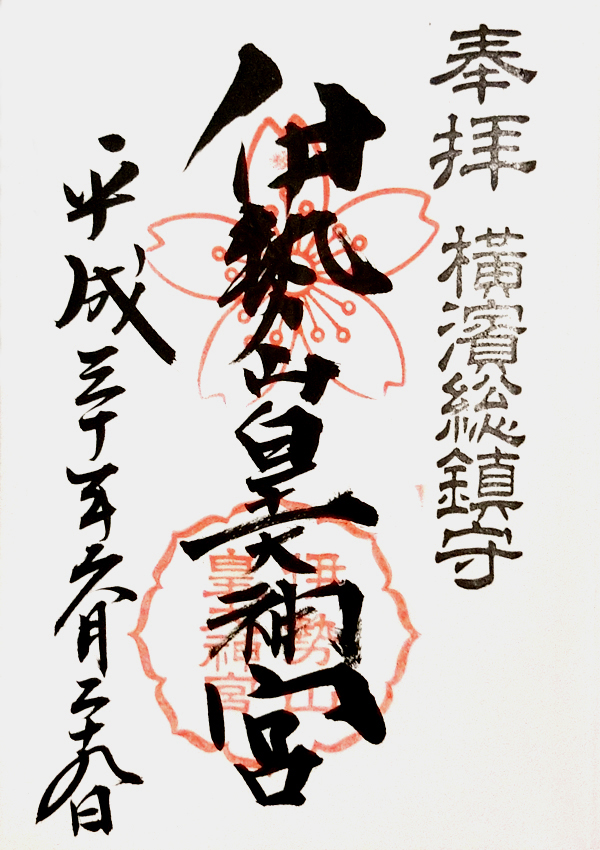 奉拝 横濱総鎮守
伊勢山皇大神宮
伊勢山
皇大神宮
平成三十年六月二十九日